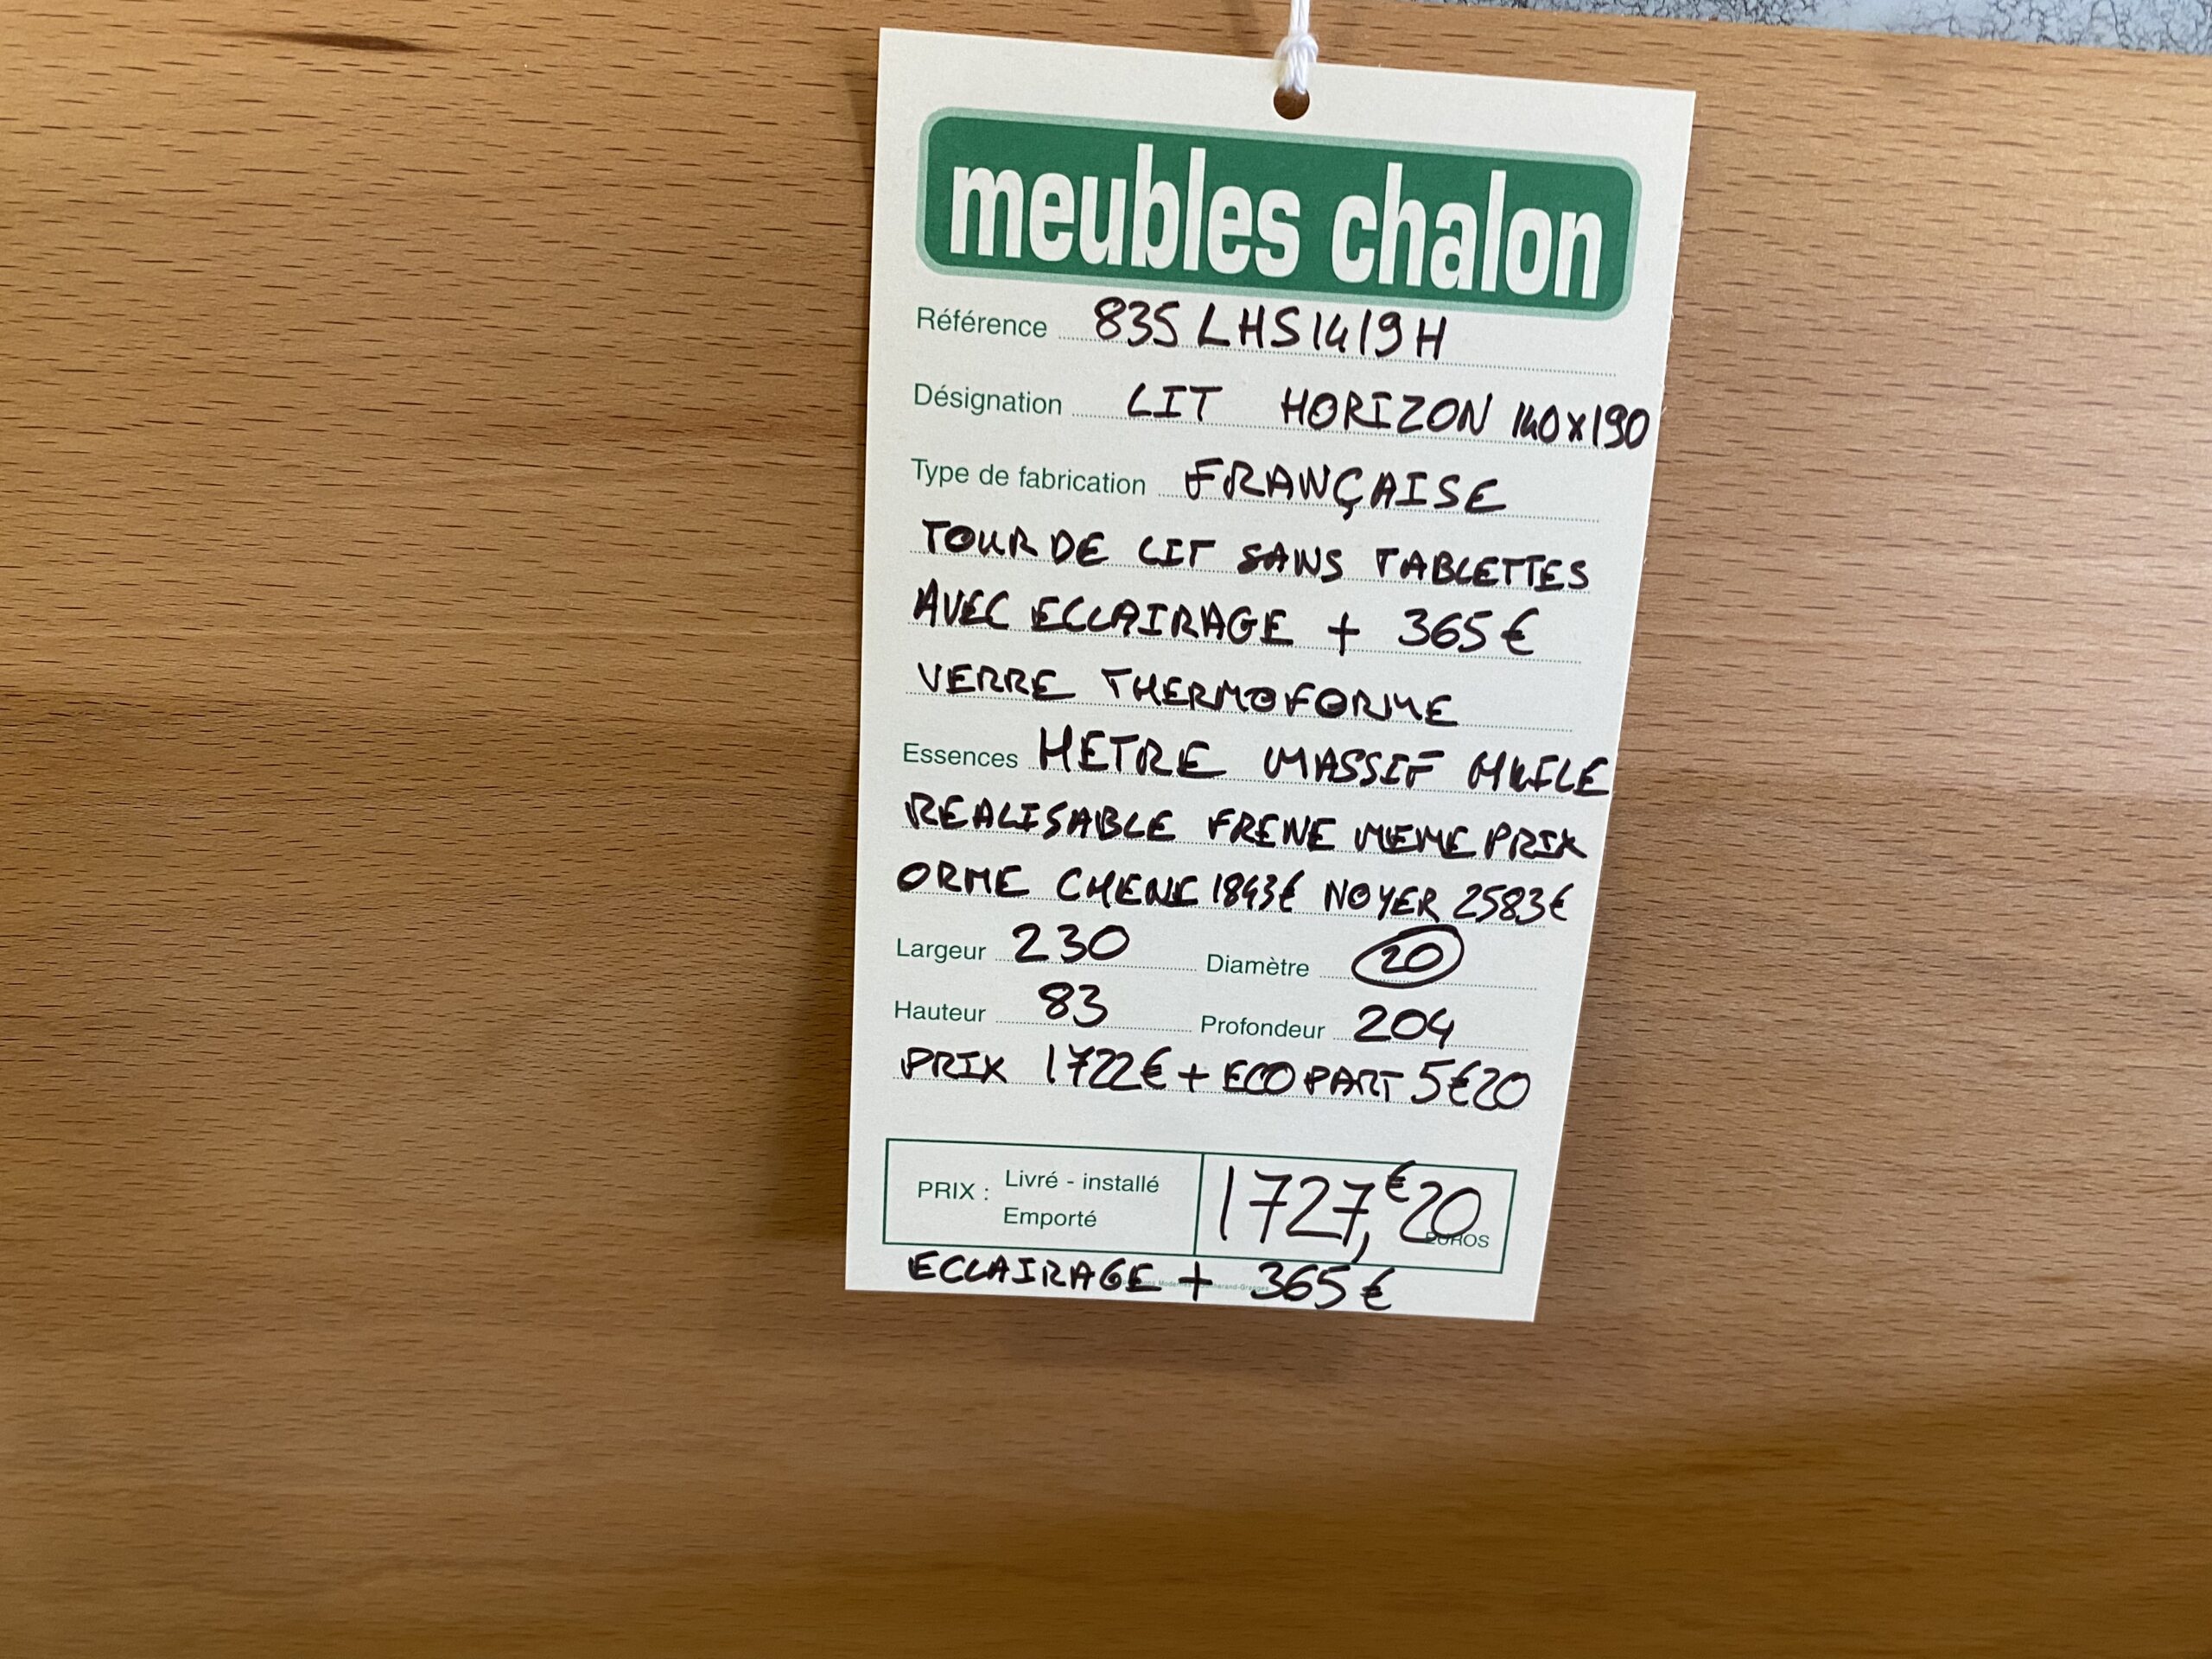 meubles chalon
Référence 835 LHS1419H
Désignation LIT HORIZON 140x190
Type de fabrication FRANÇAISE
TOUR DE LIT SANS TABLETTES
AVEC ECLAIRAGE + 365€
VERRE THERMOFORME
Essences HETRE MASSIF HUILE
REALISABLE FRENE MEME PRIX
ORME CHENE 1843€ NOYER 2583€
Largeur 230 Diamètre 20
Hauteur 83 Profondeur 204
PRIX 1722€ + ECO PART 5€20
PRIX : Livré - installé
Emporté
1727,€20
EUROS
ECLAIRAGE + 365€